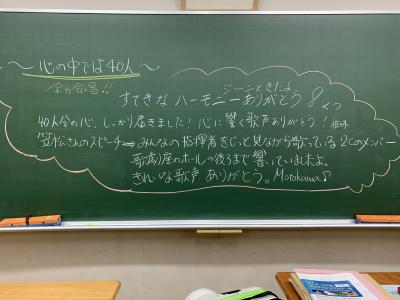 ～心の中では40人～
全力合唱!!
ジーンときたよ。
すてきなハーモニーありがとう
40人分の心、しっかり届きました！心に響く歌声ありがとう！
笠松さんのスピーチ⇒みんなの指揮者をじっと見ながら歌っている2Cのメンバー
歌声が座のホールの後ろまで響いていましたよ。
きれいな歌声ありがとう。Motokawa♪